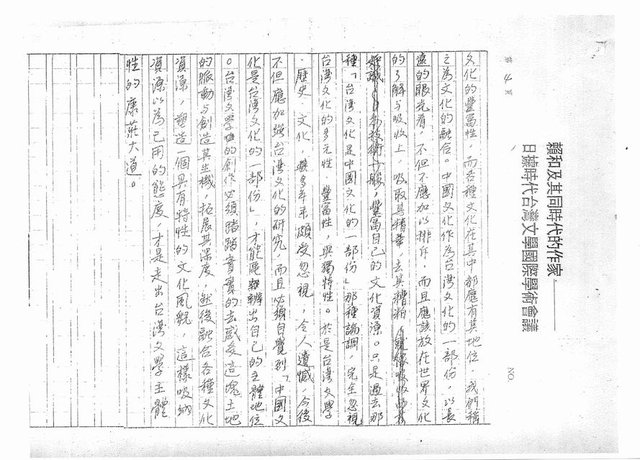 賴和及其同時代的作家
日據時代台灣文學國際學術會議
NO.
第 4 頁
文化的豐富性，而各種文化在其中那應有其地位，我們稱
之為文化的融合。中國文化作為台灣文化的一部份，以長
遠的眼光看，不但不應加以排斥，而且應該放在世界文化
的了解与吸收上，吸取其精華，去其糟粕，
豐富自己的文化資源。只是過去那
種「台灣文化是中國文化的一部份」那種論調，完全忽視
台灣文化的多元性，豐富性，與獨特性。於是台灣文學
、歷史、文化，幾多年來頗受忽視，令人遺憾，今後
不但應加強台灣文化的研究，而且必須自覺到「中國文
化是台灣文化的一部份」，才能凸顯出自己的主體地位
。台灣文學的創作必須踏踏實實的去感受這塊土地
的脈動与創造其生機，拓展其深度，然後融合各種文化
資源，塑造一個具有特性的文化風貌，這樣吸納
資源以為己用的態度，才是走出台灣文學主體
性的康莊大道。